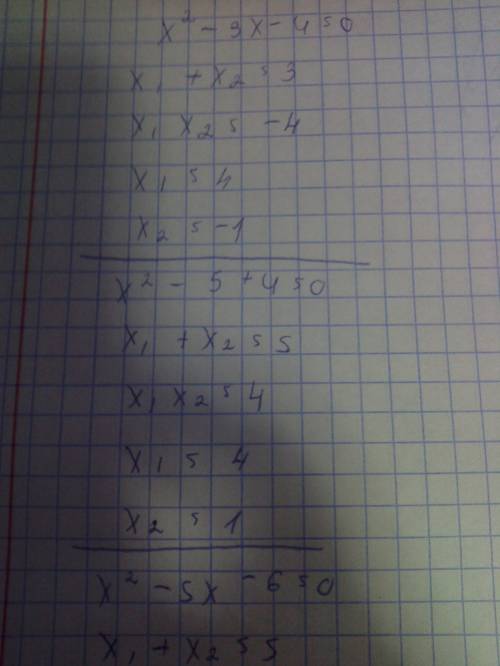 x² - 3x - 4 = 0
x₁ + x₂ = 3
x₁ x₂ = -4
x₁ = 4
x₂ = -1
x² - 5 + 4 = 0
x₁ + x₂ = 5
x₁ x₂ = 4
x₁ = 4
x₂ = 1
x² - 5x - 6 = 0
x₁ + x₂ = 5